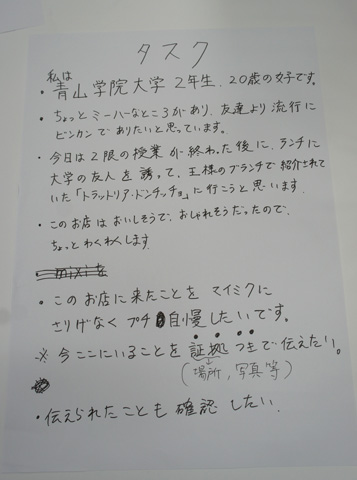 タスク
私は
・青山学院大学2年生、20歳の女子です。
・ちょっとミーハーなところがあり、友達より流行に
ビンカンでありたいと思っています。
・今日は2限の授業が終わった後に、ランチに
大学の友人を誘って、王様のブランチで紹介されて
いた「トラットリア・ドンチッチョ」に行こうと思います
・このお店はおいしそうで、おしゃれそうだったので、
ちょっとわくわくします
・mixiを
・このお店に来たことをマイミクに
さりげなくプチ自慢したいです。
※今ここにいることを証拠つきで伝えたい。
(場所,写真等)
・伝えられたことも確認したい.